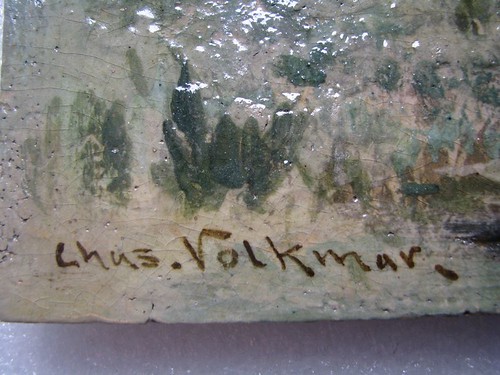 Chas. Volkmar.